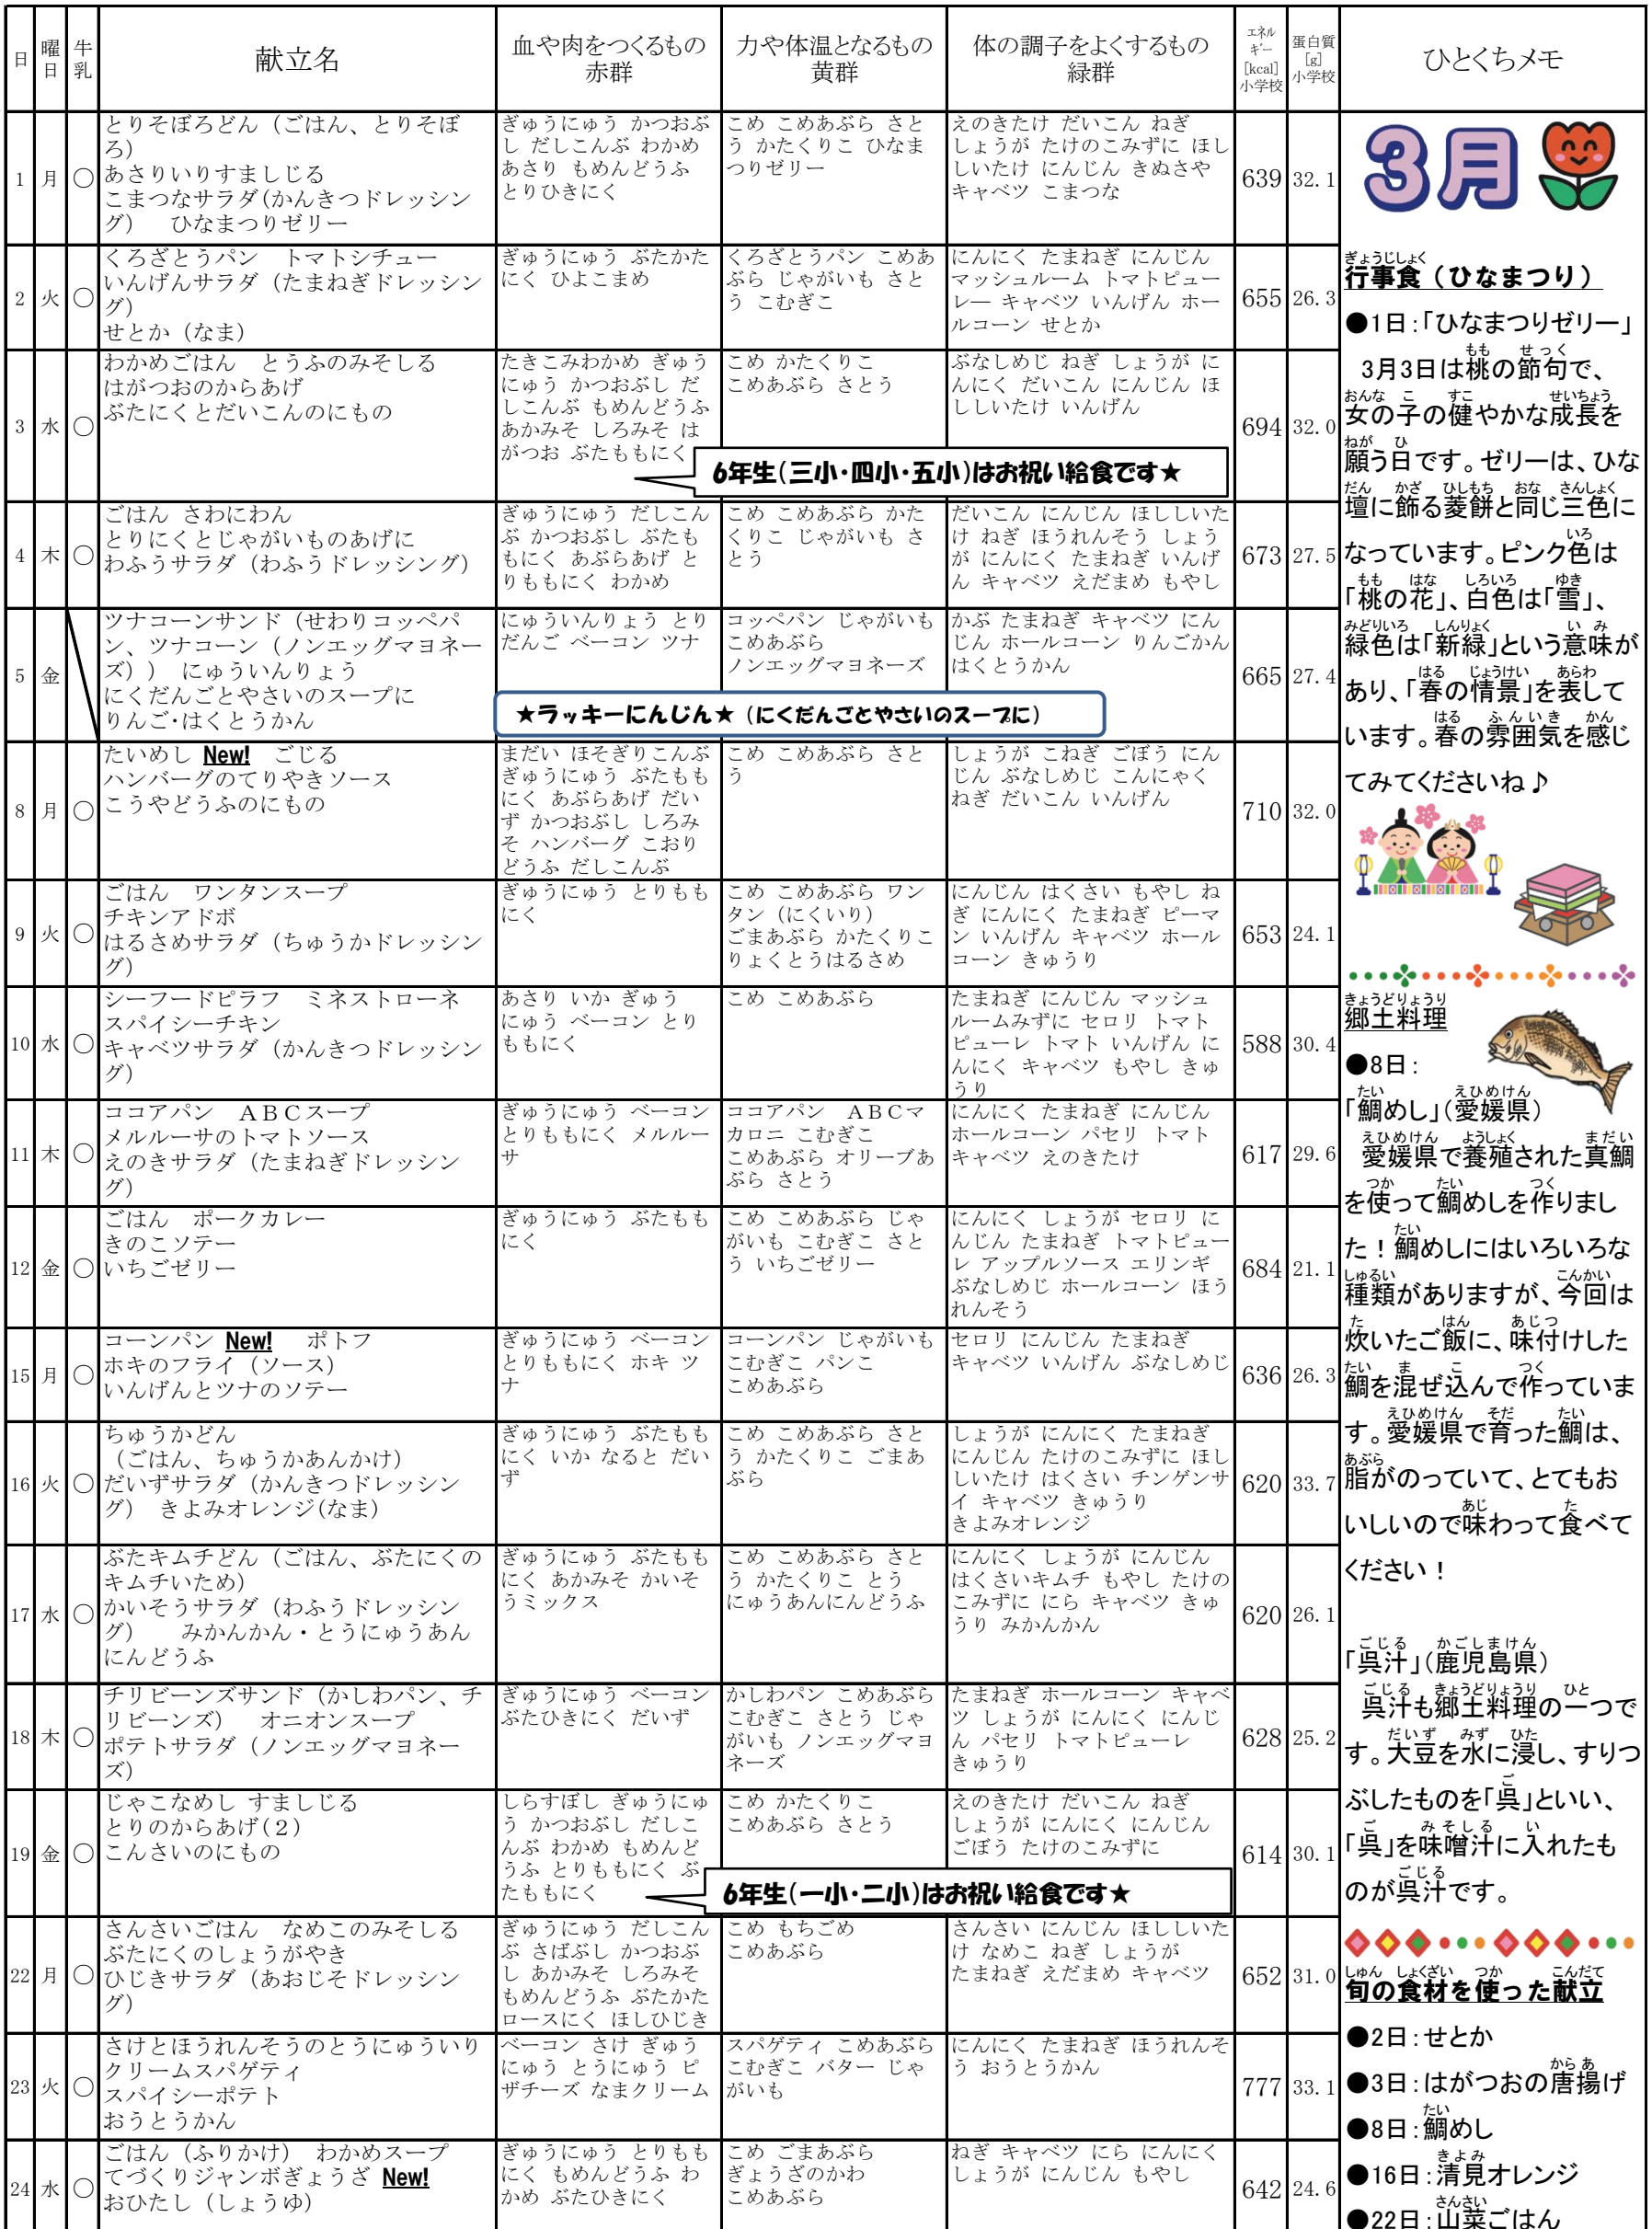 日
曜日
牛乳
献立名
血や肉をつくるもの
赤群
力や体温となるもの
黄群
体の調子をよくするもの
緑群
エネルギー
[kcal]
小学校
蛋白質
[g]
小学校
ひとくちメモ
1 月 ○
とりそぼろどん（ごはん、とりそぼ
ろ）
あさりいりすましじる
こまつなサラダ(かんきつドレッシン
グ）　ひなまつりゼリー
ぎゅうにゅう かつおぶ
し だしこんぶ わかめ
あさり もめんどうふ
とりひきにく
こめ こめあぶら さと
う かたくりこ ひなま
つりゼリー
えのきたけ だいこん ねぎ
しょうが たけのこみずに ほし
しいたけ にんじん きぬさや
キャベツ こまつな
639 32.1
2 火 ○
くろざとうパン　トマトシチュー
いんげんサラダ（たまねぎドレッシン
グ）
せとか（なま）
ぎゅうにゅう ぶたかた
にく ひよこまめ
くろざとうパン こめあ
ぶら じゃがいも さと
う こむぎこ
にんにく たまねぎ にんじん
マッシュルーム トマトピュー
レ― キャベツ いんげん ホー
ルコーン せとか
655 26.3
3 水 ○
わかめごはん　とうふのみそしる
はがつおのからあげ
ぶたにくとだいこんのにもの
たきこみわかめ ぎゅう
にゅう かつおぶし だ
しこんぶ もめんどうふ
あかみそ しろみそ は
がつお ぶたももにく
こめ かたくりこ
こめあぶら さとう
ぶなしめじ ねぎ しょうが に
んにく だいこん にんじん ほ
ししいたけ いんげん
694 32.0
6年生(三小・四小・五小)はお祝い給食です★
4 木 ○
ごはん さわにわん
とりにくとじゃがいものあげに
わふうサラダ（わふうドレッシング）
ぎゅうにゅう だしこん
ぶ かつおぶし ぶたも
もにく あぶらあげ と
りももにく わかめ
こめ こめあぶら かた
くりこ じゃがいも さ
とう
だいこん にんじん ほししいた
け ねぎ ほうれんそう しょう
が にんにく たまねぎ いんげ
ん キャベツ えだまめ もやし
673 27.5
5 金
ツナコーンサンド（せわりコッペパ
ン、ツナコーン（ノンエッグマヨネー
ズ））　にゅういんりょう
にくだんごとやさいのスープに
りんご・はくとうかん
にゅういんりょう とり
だんご ベーコン ツナ
コッペパン じゃがいも
こめあぶら
ノンエッグマヨネーズ
かぶ たまねぎ キャベツ にん
じん ホールコーン りんごかん
はくとうかん
665 27.4
★ラッキーにんじん★（にくだんごとやさいのスープに）
8 月 ○
たいめし New!　ごじる
ハンバーグのてりやきソース
こうやどうふのにもの
まだい ほそぎりこんぶ
ぎゅうにゅう ぶたもも
にく あぶらあげ だい
ず かつおぶし しろみ
そ ハンバーグ こおり
どうふ だしこんぶ
こめ こめあぶら さと
う
しょうが こねぎ ごぼう にん
じん ぶなしめじ こんにゃく
ねぎ だいこん いんげん
710 32.0
9 火 ○
ごはん　ワンタンスープ
チキンアドボ
はるさめサラダ（ちゅうかドレッシン
グ）
ぎゅうにゅう とりもも
にく
こめ こめあぶら ワン
タン（にくいり）
ごまあぶら かたくりこ
りょくとうはるさめ
にんじん はくさい もやし ね
ぎ にんにく たまねぎ ピーマ
ン いんげん キャベツ ホール
コーン きゅうり
653 24.1
10 水 ○
シーフードピラフ　ミネストローネ
スパイシーチキン
キャベツサラダ（かんきつドレッシン
グ）
あさり いか ぎゅう
にゅう ベーコン とり
ももにく
こめ こめあぶら
たまねぎ にんじん マッシュ
ルームみずに セロリ トマト
ピューレ トマト いんげん に
んにく キャベツ もやし きゅ
うり
588 30.4
11 木 ○
ココアパン　ＡＢＣスープ
メルルーサのトマトソース
えのきサラダ（たまねぎドレッシン
グ）
ぎゅうにゅう ベーコン
とりももにく メルルー
サ
ココアパン　ＡＢＣマ
カロニ こむぎこ
こめあぶら オリーブあ
ぶら さとう
にんにく たまねぎ にんじん
ホールコーン パセリ トマト
キャベツ えのきたけ
617 29.6
12 金 ○
ごはん　ポークカレー
きのこソテー
いちごゼリー
ぎゅうにゅう ぶたもも
にく
こめ こめあぶら じゃ
がいも こむぎこ さと
う いちごゼリー
にんにく しょうが セロリ に
んじん たまねぎ トマトピュー
レ アップルソース エリンギ
ぶなしめじ ホールコーン ほう
れんそう
684 21.1
15 月 ○
コーンパン New!　ポトフ
ホキのフライ（ソース）
いんげんとツナのソテー
ぎゅうにゅう ベーコン
とりももにく ホキ ツ
ナ
コーンパン じゃがいも
こむぎこ パンこ
こめあぶら
セロリ にんじん たまねぎ
キャベツ いんげん ぶなしめじ
636 26.3
16 火 ○
ちゅうかどん
（ごはん、ちゅうかあんかけ）
だいずサラダ（かんきつドレッシン
グ）　きよみオレンジ(なま）
ぎゅうにゅう ぶたもも
にく いか なると だい
ず
こめ こめあぶら さと
う かたくりこ ごまあ
ぶら
しょうが にんにく たまねぎ
にんじん たけのこみずに ほし
しいたけ はくさい チンゲンサ
イ キャベツ きゅうり
きよみオレンジ
620 33.7
17 水 ○
ぶたキムチどん（ごはん、ぶたにくの
キムチいため）
かいそうサラダ（わふうドレッシン
グ）　みかんかん・とうにゅうあん
にんどうふ
ぎゅうにゅう ぶたもも
にく あかみそ かいそ
うミックス
こめ こめあぶら さと
う かたくりこ とう
にゅうあんにんどうふ
にんにく しょうが にんじん
はくさいキムチ もやし たけの
こみずに にら キャベツ きゅ
うり みかんかん
620 26.1
18 木 ○
チリビーンズサンド（かしわパン、チ
リビーンズ）　オニオンスープ
ポテトサラダ（ノンエッグマヨネー
ズ）
ぎゅうにゅう ベーコン
ぶたひきにく だいず
かしわパン こめあぶら
こむぎこ さとう じゃ
がいも ノンエッグマヨ
ネーズ
たまねぎ ホールコーン キャベ
ツ しょうが にんにく にんじ
ん パセリ トマトピューレ
きゅうり
628 25.2
19 金 ○
じゃこなめし すましじる
とりのからあげ(２)
こんさいのにもの
しらすぼし ぎゅうにゅ
う かつおぶし だしこ
んぶ わかめ もめんど
うふ とりももにく ぶ
たももにく
こめ かたくりこ
こめあぶら さとう
えのきたけ だいこん ねぎ
しょうが にんにく にんじん
ごぼう たけのこみずに
614 30.1
6年生(一小・二小)はお祝い給食です★
22 月 ○
さんさいごはん　なめこのみそしる
ぶたにくのしょうがやき
ひじきサラダ（あおじそドレッシン
グ）
ぎゅうにゅう だしこん
ぶ さばぶし かつおぶ
し あかみそ しろみそ
もめんどうふ ぶたかた
ロースにく ほしひじき
こめ もちごめ
こめあぶら
さんさい にんじん ほししいた
け なめこ ねぎ しょうが
たまねぎ えだまめ キャベツ
652 31.0
23 火 ○
さけとほうれんそうのとうにゅういり
クリームスパゲティ
スパイシーポテト
おうとうかん
ベーコン さけ ぎゅう
にゅう とうにゅう ピ
ザチーズ なまクリーム
スパゲティ こめあぶら
こむぎこ バター じゃ
がいも
にんにく たまねぎ ほうれんそ
う おうとうかん
777 33.1
24 水 ○
ごはん（ふりかけ）　わかめスープ
てづくりジャンボぎょうざ New!
おひたし（しょうゆ）
ぎゅうにゅう とりもも
にく もめんどうふ わ
かめ ぶたひきにく
こめ ごまあぶら
ぎょうざのかわ
こめあぶら
ねぎ キャベツ にら にんにく
しょうが にんじん もやし
642 24.6
3月
ぎょうじしょく
行事食（ひなまつり）
●1日：「ひなまつりゼリー」
もも　せっく
3月3日は桃の節句で、
おんな　こ　すこ　せいちょう
女の子の健やかな成長を
ねが　ひ
願う日です。ゼリーは、ひな
だん　かざ　ひしもち　おな　さんしょく
壇に飾る菱餅と同じ三色に
いろ
なっています。ピンク色は
もも　はな　しろいろ　ゆき
「桃の花」、白色は「雪」、
みどりいろ　しんりょく　いみ
緑色は「新緑」という意味が
はる　じょうけい　あらわ
あり、「春の情景」を表して
はる　ふんいき　かん
います。春の雰囲気を感じ
てみてくださいね♪
きょうどりょうり
郷土料理
●8日：
たい　えひめけん
「鯛めし」（愛媛県）
えひめけん　ようしょく　まだい
愛媛県で養殖された真鯛
つか　たい　つく
を使って鯛めしを作りまし
たい
た！鯛めしにはいろいろな
しゅるい　こんかい
種類がありますが、今回は
た　はん　あじつ
炊いたご飯に、味付けした
たい　ま　こ　つく
鯛を混ぜ込んで作っていま
えひめけん　そだ　たい
す。愛媛県で育った鯛は、
あぶら
脂がのっていて、とてもお
あじ　た
いしいので味わって食べて
ください！
ごじる　かごしまけん
「呉汁」（鹿児島県）
ごじる　きょうどりょうり　ひと
呉汁も郷土料理の一つで
だいず　みず　ひた
す。大豆を水に浸し、すりつ
ご
ぶしたものを「呉」といい、
ご　みそしる　い
「呉」を味噌汁に入れたも
ごじる
のが呉汁です。
しゅん　しょくざい　つか　こんだて
旬の食材を使った献立
●2日：せとか
からあ
●3日：はがつおの唐揚げ
たい
●8日：鯛めし
きよみ
●16日：清見オレンジ
さんさい
●22日：山菜ごはん